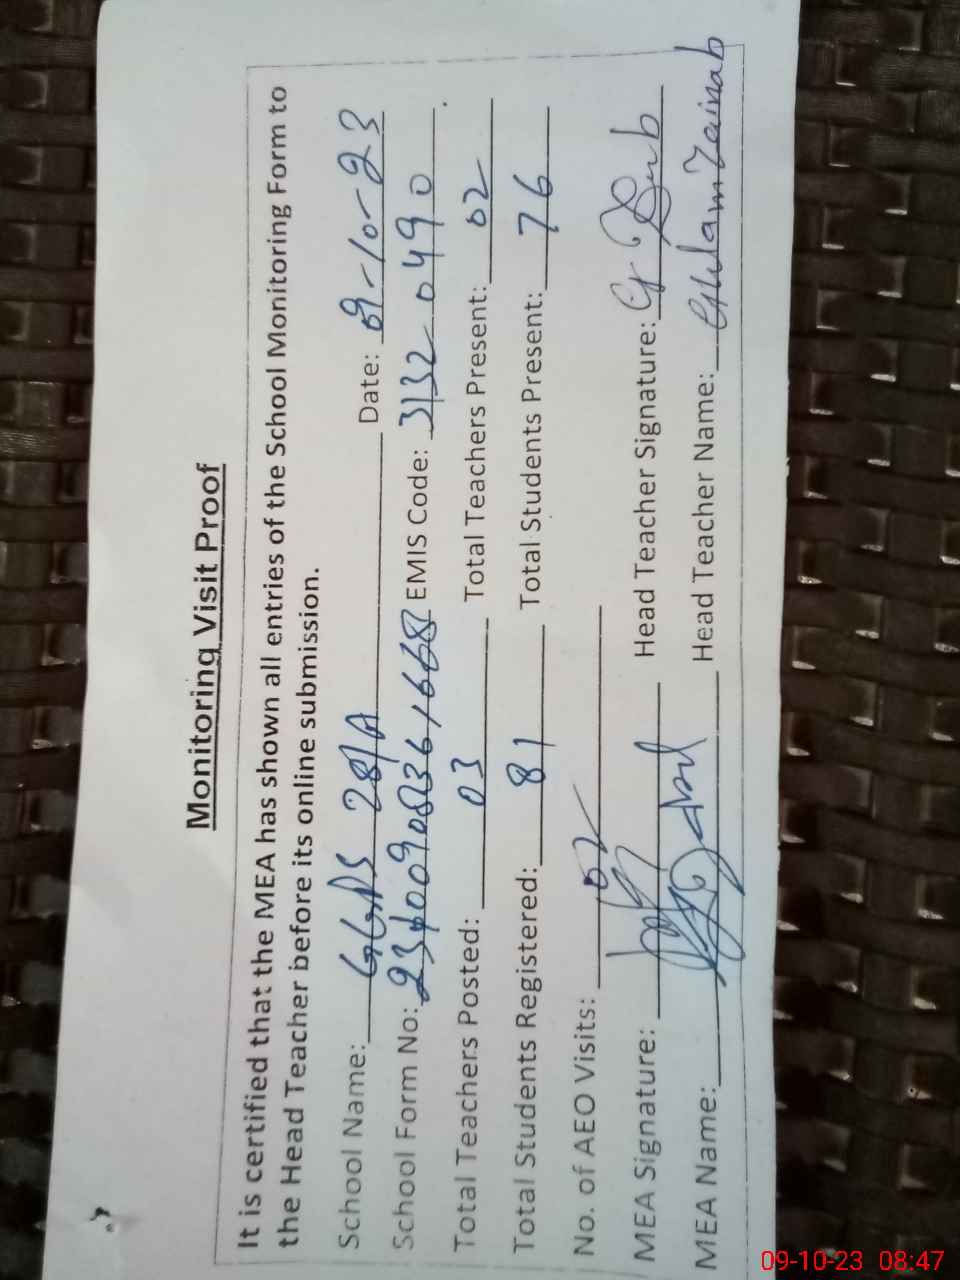 Monitoring Visit Proof
It is certified that the MEA has shown all entries of the School Monitoring Form to
the Head Teacher before its online submission.
School Name: GGPS 281/A Date: 09-10-23
School Form No: EMIS Code: 3132 0490
Total Teachers Posted: 03 Total Teachers Present: 02
Total Students Registered: 81 Total Students Present: 76
No. of AEO Visits: 02
MEA Signature: Head Teacher Signature:
MEA Name: Head Teacher Name: Ghulam Zainab
09-10-23 08:47